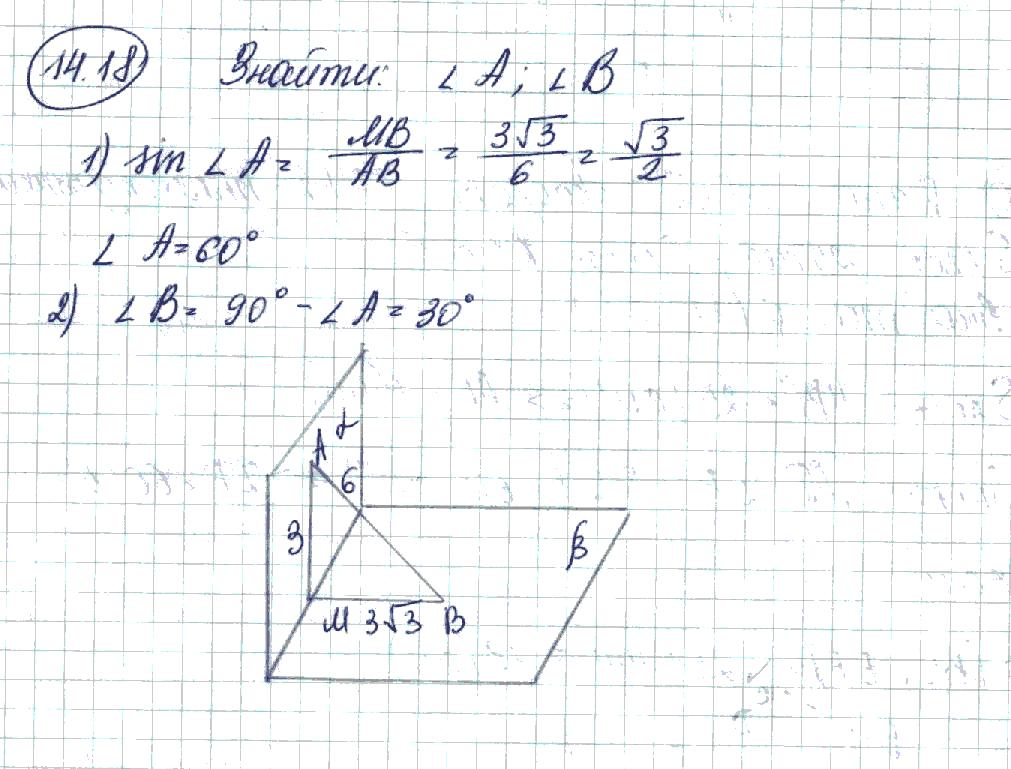 14.18 Знайти: ∠ A; ∠ B
1) sin ∠ A = MB/AB = 3√3/6 = √3/2
∠ A = 60°
2) ∠ B = 90° - ∠ A = 30°
α
A
6
3
β
M 3√3 B